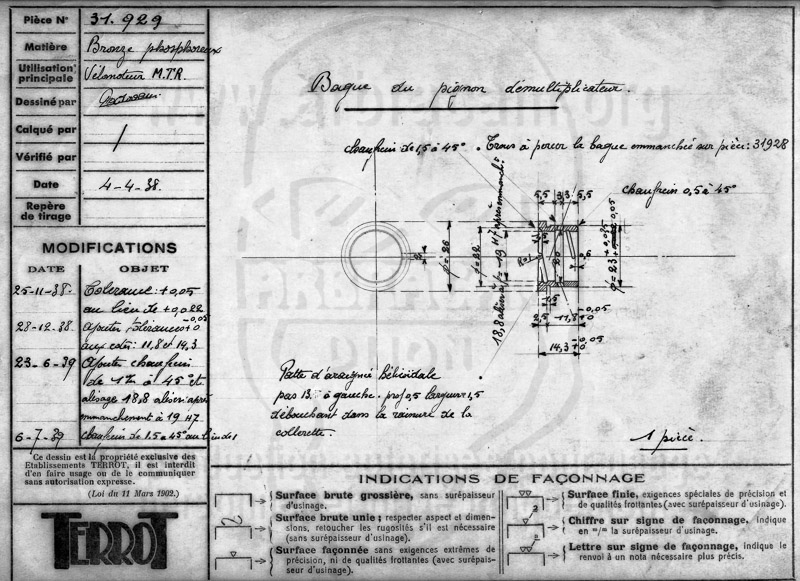 Pièce N° 31.929
Matière Bronze phosphoreux
Utilisation principale Vélomoteur M.T.R.
Dessiné par
Calqué par
Vérifié par
Date 4-4-38.
Repère de tirage
MODIFICATIONS
DATE OBJET
25-11-38. Tolérance: +0,05
au lieu de +0,022
28-12-38. Ajouter tolérances +0 -0,05
aux cotes: 11,8 et 14,3
23-6-39 Ajouter chanfrein
de 1 m à 45° et
alésage 18,8 aléser après
emmanchement à 19 H7
6-7-39 chanfrein de 1,5 à 45° au lieu de 1
Ce dessin est la propriété exclusive des
Etablissements TERROT, il est interdit
d'en faire usage ou de le communiquer
sans autorisation expresse.
(Loi du 11 Mars 1902.)
TERROT
Bague du pignon démultiplicateur.
chanfrein de 1,5 à 45°. Trous à percer la bague emmanchée sur pièce: 31928
chanfrein 0,5 à 45°
5,5 3 3 5,5
ø=26
ø=22
18,8 aléser à ø=19 H7 après emmanch.
ø=23 +0,05
2,5 11,8 -0,05 +0
14,3 -0,05 +0
Patte d'araignée hélicoïdale
pas 13. à gauche. prof 0,5 largeur 1,5
débouchant dans la rainure de la
collerette.
1 pièce.
INDICATIONS DE FAÇONNAGE
Surface brute grossière, sans surépaisseur
d'usinage.
Surface brute unie; respecter aspect et dimen-
sions, retoucher les rugosités s'il est nécessaire
(sans surépaisseur d'usinage).
Surface façonnée sans exigences extrêmes de
précision, ni de qualités frottantes (avec surépais-
seur d'usinage).
Surface finie, exigences spéciales de précision et
de qualités frottantes (avec surépaisseur d'usinage).
Chiffre sur signe de façonnage, indique
en m/m la surépaisseur d'usinage.
Lettre sur signe de façonnage, indique le
renvoi à un nota nécessaire plus précis.